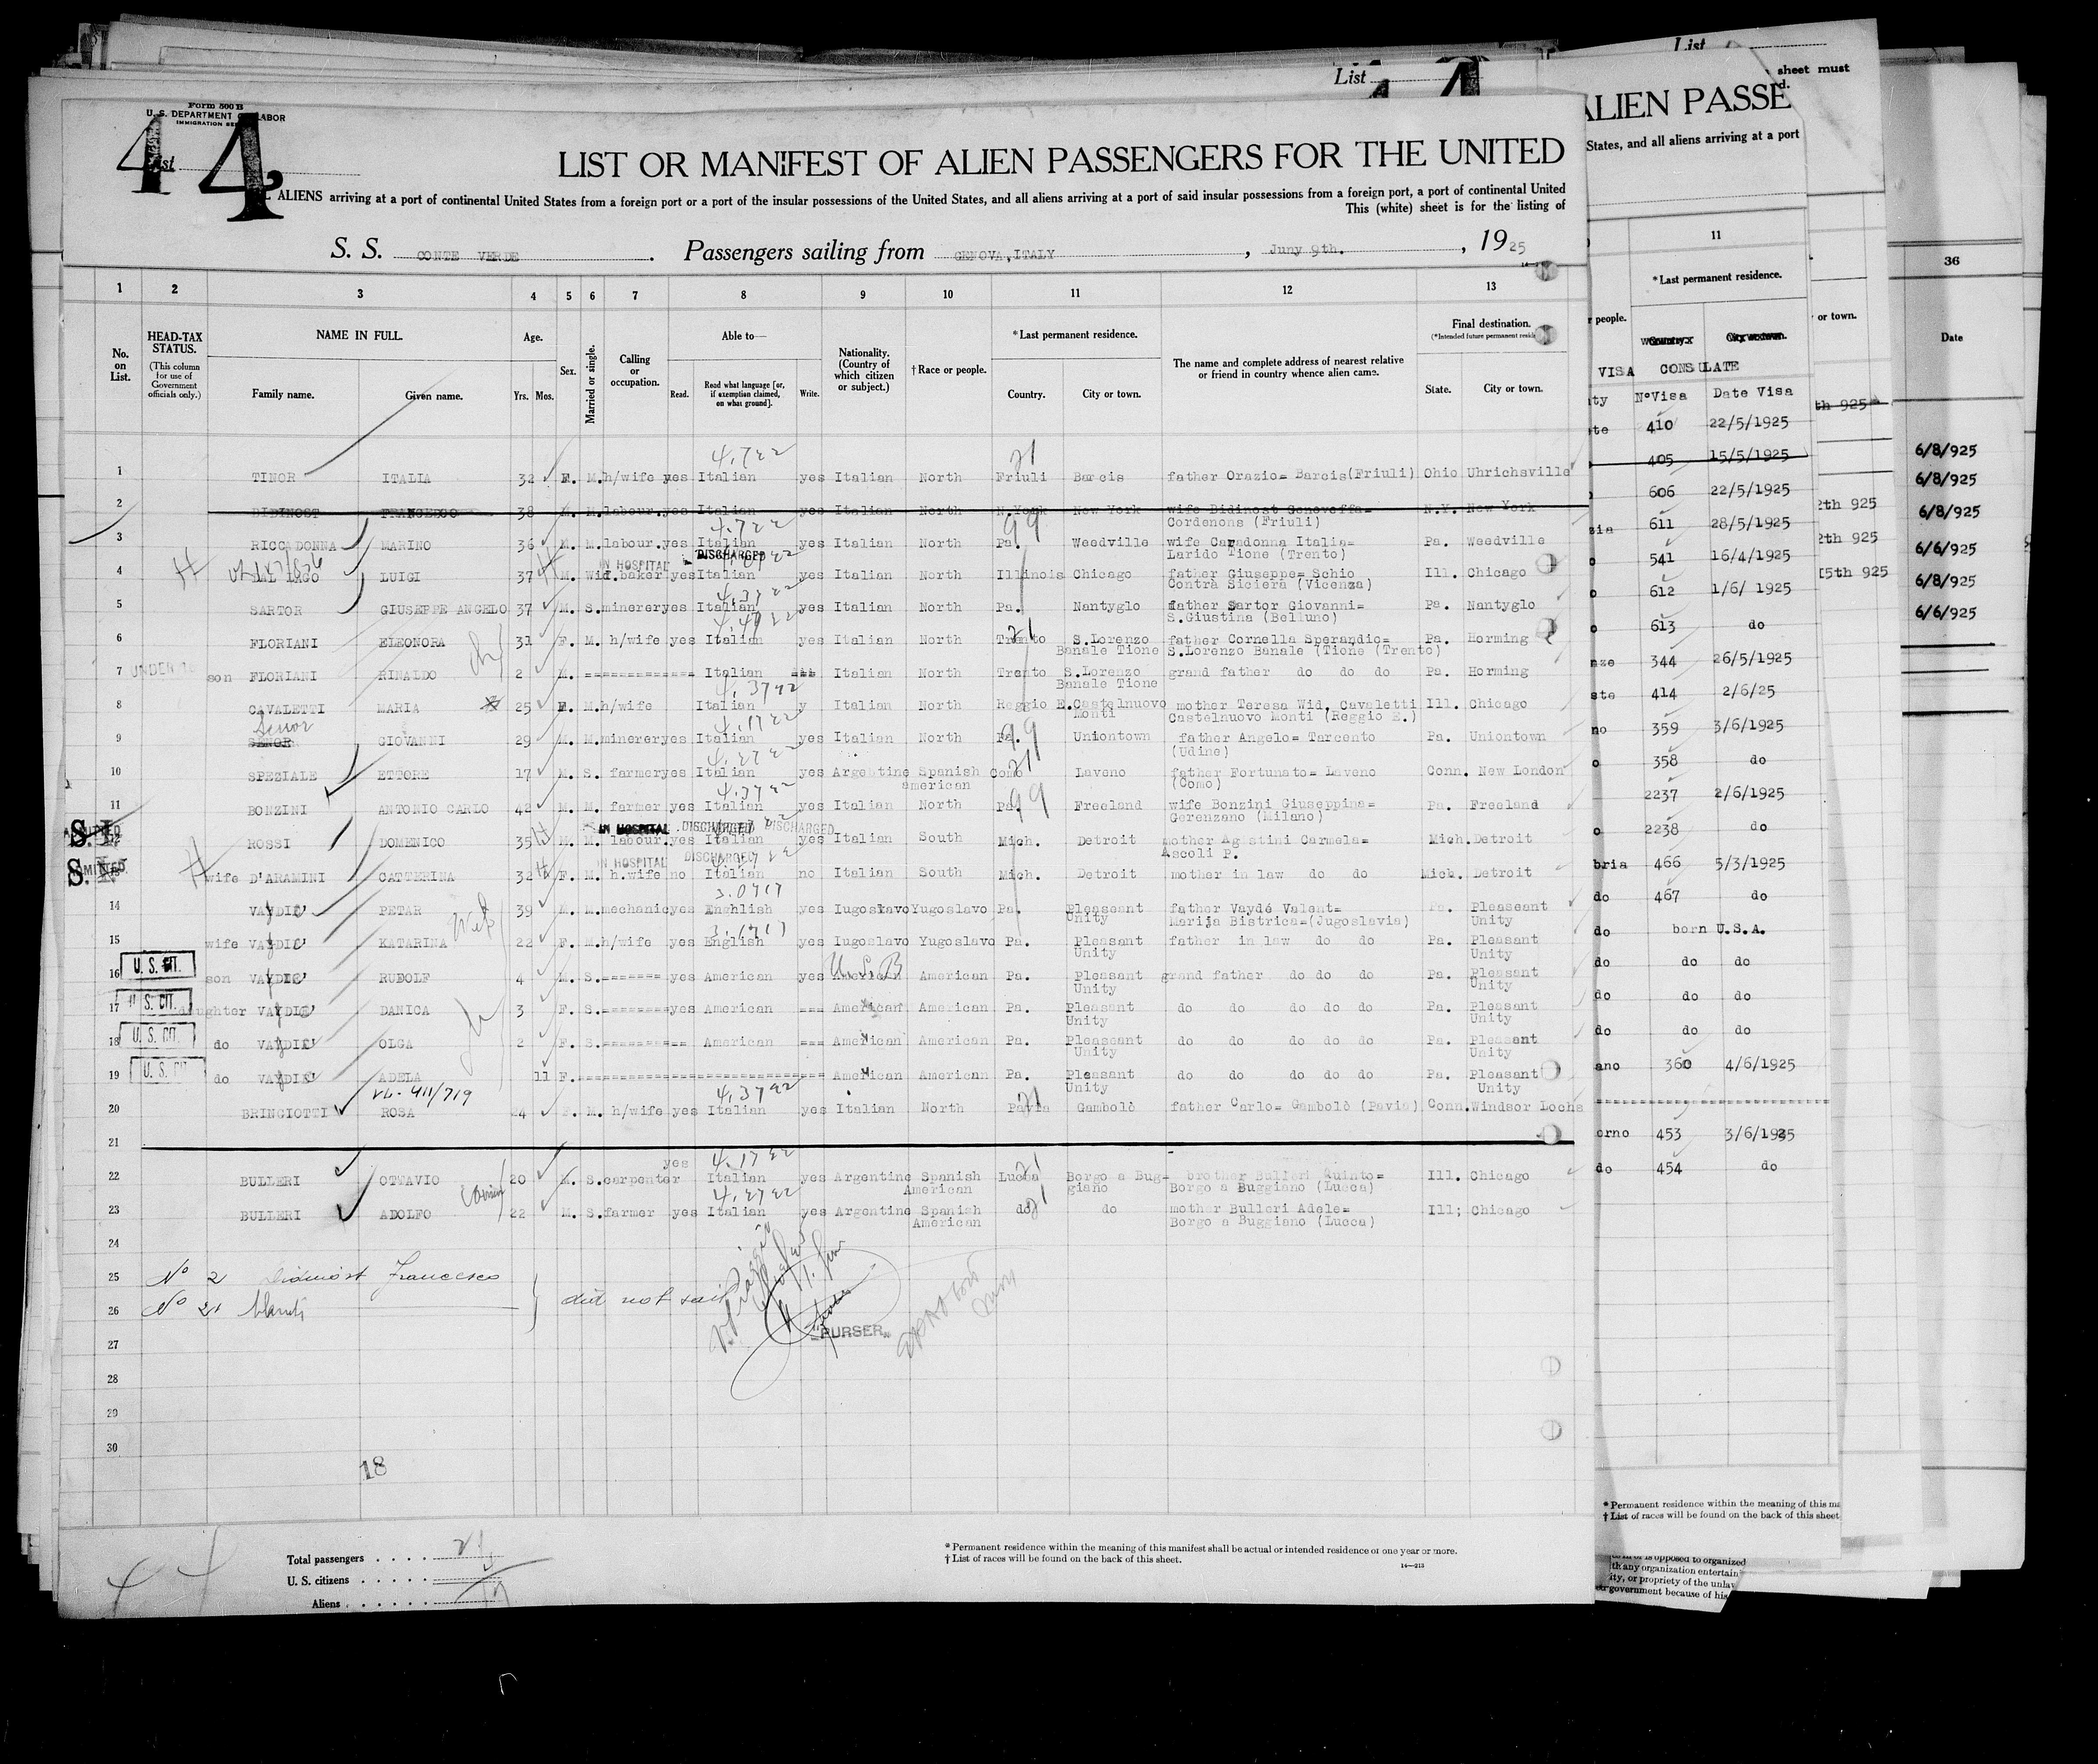 List
List
sheet must
Form 500 B
U. S. DEPARTMENT OF LABOR
IMMIGRATION SE
44
List
LIST OR MANIFEST OF ALIEN PASSENGERS FOR THE UNITED
ALIEN PASSE
ALIENS arriving at a port of continental United States from a foreign port or a port of the insular possessions of the United States, and all aliens arriving at a port of said insular possessions from a foreign port, a port of continental United
States, and all aliens arriving at a port
This (white) sheet is for the listing of
S. S. CONTE VERDE. Passengers sailing from GENOVA, ITALY, Juny 9th., 1925
1 2 3 4 5 6 7 8 9 10 11 12 13
No. on List.
HEAD-TAX STATUS.
(This column for use of Government officials only.)
NAME IN FULL.
Family name. Given name.
Age.
Yrs. Mos.
Sex.
Married or single.
Calling or occupation.
Able to—
Read. Read what language [or, if exemption claimed, on what ground]. Write.
Nationality. (Country of which citizen or subject.)
† Race or people.
*Last permanent residence.
Country. City or town.
The name and complete address of nearest relative or friend in country whence alien came.
Final destination.
State. City or town.
1 TINOR ITALIA 32 F. M. h/wife yes Italian yes Italian North Friuli Barcis father Orazio= Barcis(Friuli) Ohio Uhrichsville
2 DIDINOST FRANCESCO 38 M. M. labour. yes Italian yes Italian North N.York New York wife Didinost Genoveffa= Cordenons (Friuli) N.Y. New York
3 RICCADONNA MARINO 36 M. M. labour. yes Italian yes Italian North Pa. Weedville wife Caradonna Italia= Larido Tione (Trento) Pa. Weedville
IN HOSPITAL DISCHARGED
4 DAL LAGO LUIGI 37 M. Wid. baker yes Italian yes Italian North Illinois Chicago father Giuseppe= Schio Contrà Siciera (Vicenza) Ill. Chicago
5 SARTOR GIUSEPPE ANGELO 37 M. S. miner yes Italian yes Italian North Pa. Nantyglo father Sartor Giovanni= S.Giustina (Belluno) Pa. Nantyglo
6 FLORIANI ELEONORA 31 F. M. h/wife yes Italian yes Italian North Trento S.Lorenzo Banale Tione father Cornella Sperandio= S.Lorenzo Banale (Tione (Trento) Pa. Horming
7 UNDER 16 son FLORIANI RINALDO 2 M. Italian Italian North Trento S.Lorenzo Banale Tione grand father do do do Pa. Horming
8 CAVALETTI MARIA 25 F. M. h/wife Italian y Italian North Reggio E. Castelnuovo Monti mother Teresa Wid. Cavaletti Castelnuovo Monti (Reggio E.) Ill. Chicago
9 GIOVANNI 29 M. M. miner yes Italian yes Italian North Pa. Uniontown father Angelo= Tarcento (Udine) Pa. Uniontown
10 SPEZIALE ETTORE 17 M. S. farmer yes Italian yes Argentine Spanish american Como Laveno father Fortunato= Laveno (Como) Conn. New London
11 BONZINI ANTONIO CARLO 42 M. M. farmer yes Italian yes Italian North Pa. Freeland wife Bonzini Giuseppina= Gerenzano (Milano) Pa. Freeland
IN HOSPITAL DISCHARGED DISCHARGED
S. I. ROSSI DOMENICO 35 M. M. labour. yes Italian yes Italian South Mich. Detroit mother Agostini Carmela= Ascoli P. Mich. Detroit
IN HOSPITAL DISCHARGED
S. wife D'ARAMINI CATTERINA 32 F. M. h.wife no Italian no Italian South Mich. Detroit mother in law do do Mich. Detroit
14 PETAR 39 M. M. mechanic yes Enghlish yes Iugoslavo Yugoslavo Pa. Pleaseant Unity father Vaydé Valent= Marija Bistrica=(Jugoslavia) Pa. Pleaseant Unity
15 wife KATARINA 22 F. M. h/wife yes English yes Iugoslavo Yugoslavo Pa. Pleasant Unity father in law do do Pa. Pleasant Unity
16 U. S. CIT. son RUDOLF 4 M. S. yes American yes American American Pa. Pleasant Unity grand father do do do Pa. Pleasant Unity
17 U. S. CIT. daughter DANICA 3 F. S. yes American American American Pa. Pleasant Unity do do do do do Pa. Pleasant Unity
18 U. S. CIT. do OLGA 2 F. S. American American American Pa. Pleaseant Unity do do do do do Pa. Pleasant Unity
19 U. S. CIT do ADELA 11 F. American American Pa. Pleasant Unity do do do do do Pa. Pleasant Unity
20 BRINGIOTTI ROSA M. h/wife yes Italian yes Italian North Pavia Gambolò father Carlo= Gambolò (Pavia) Conn. Windsor Lochs
21
22 BULLERI OTTAVIO 20 M. S. carpenter yes Italian yes Argentine Spanish American Lucca Borgo a Buggiano brother Bulleri Quinto= Borgo a Buggiano (Lucca) Ill. Chicago
23 BULLERI ADOLFO 22 M. S. farmer yes Italian yes Argentine Spanish American do do mother Bulleri Adele= Borgo a Buggiano (Lucca) Ill; Chicago
24
25 No 2 Francesco
26 No 21
did not sail
"PURSER"
27
28
29
30
18
Total passengers
U. S. citizens
Aliens
* Permanent residence within the meaning of this manifest shall be actual or intended residence of one year or more.
† List of races will be found on the back of this sheet.
14—213
11
*Last permanent residence.
people.
VISA CONSULATE
NoVisa Date Visa
410 22/5/1925
405 15/5/1925
606 22/5/1925
611 28/5/1925
541 16/4/1925
612 1/6/ 1925
613 do
344 26/5/1925
414 2/6/25
359 3/6/1925
358 do
2237 2/6/1925
2238 do
bria 466 5/3/1925
do 467 do
do born U.S.A.
do do do
do do do
do do do
ano 360 4/6/1925
orno 453 3/6/1925
do 454 do
* Permanent residence within the meaning of this ma
† List of races will be found on the back of this sheet
is opposed to organized
th any organization entertain
ity, or propriety of the unlaw
government because of his
or town.
th 925
2th 925
2th 925
15th 925
36
Date
6/8/925
6/8/925
6/8/925
6/6/925
6/8/925
6/6/925